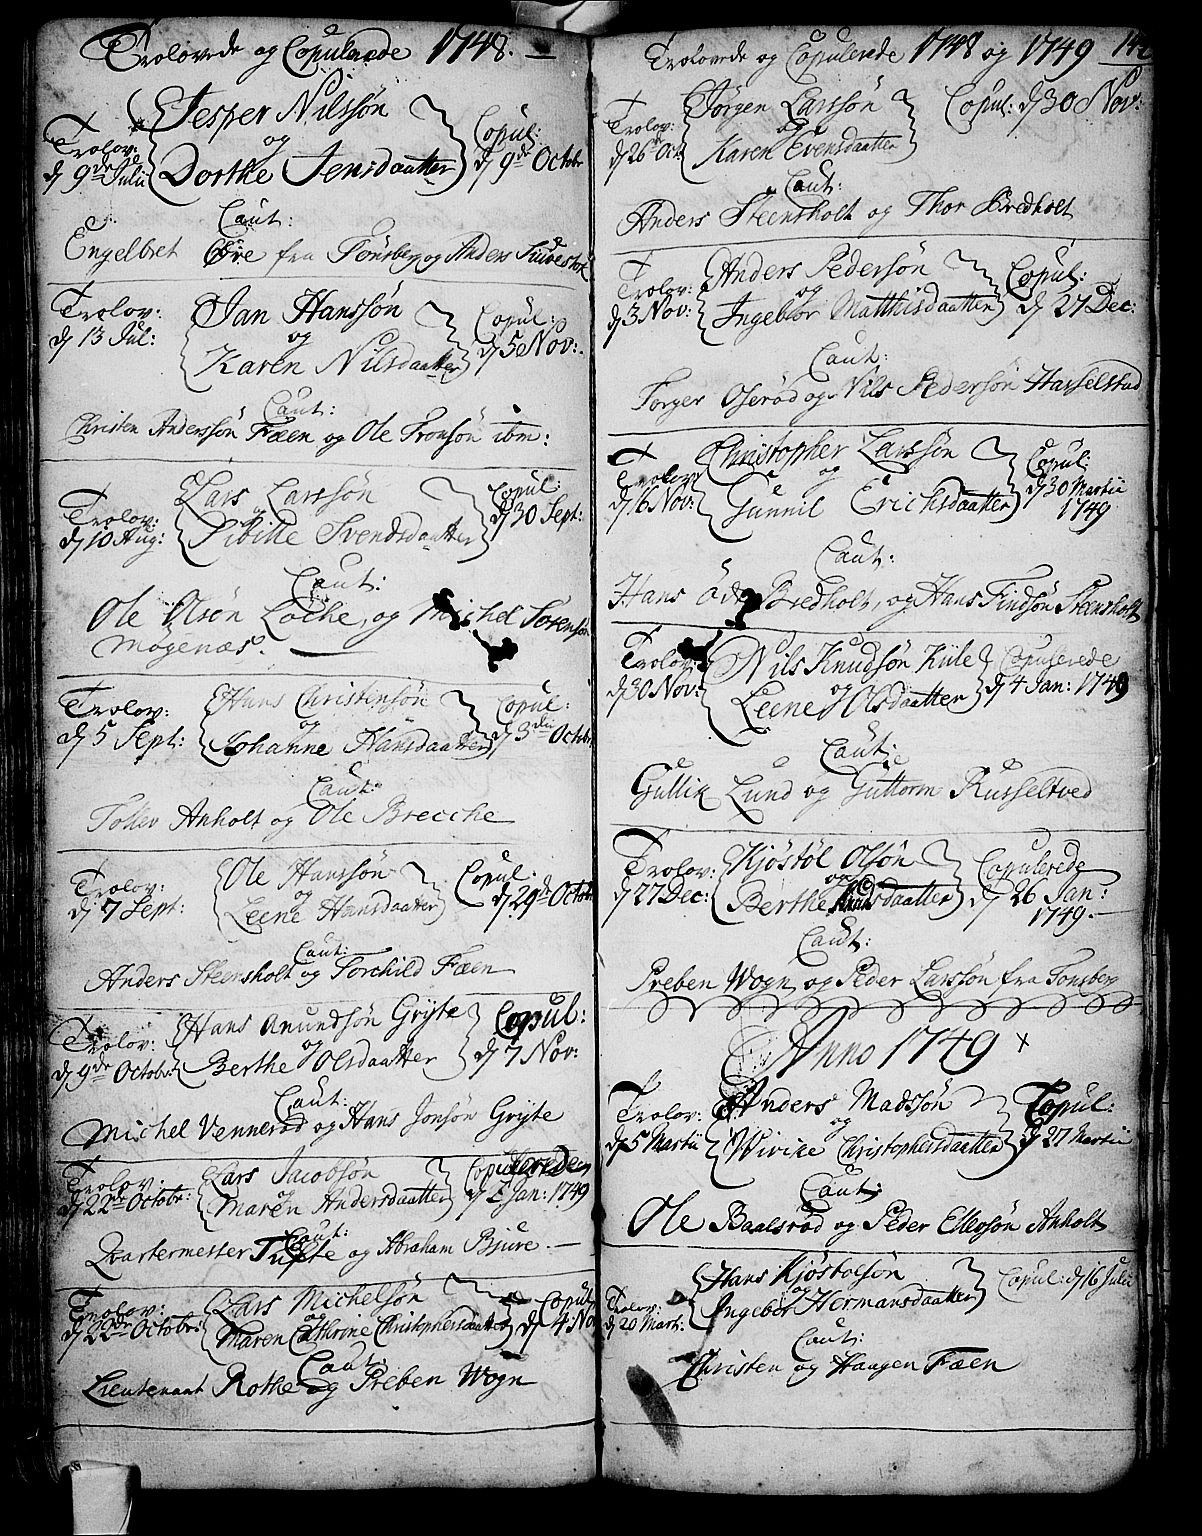 Trolovede og Copulerede 1748.
Jesper Nilssøn
Trolov: og Copul:
d 9de Julii Dorthe Jensdaatter d 9de Octobr
Caut:
Engelbret Øre fra Tønsberg og Anders
Trolov: Jan Hanssøn Copul:
d 13 Jul: og d 5 Nov:
Karen Nilsdaatter
Caut:
Christen Anderssøn Fæen og Ole Tronsøn ibm:
Lars Larssøn Copul:
Trolov: og d 30 Sept:
d 10 Aug: Sibille Svendsdaatter
Caut:
Ole Olsøn Løche, og Michel Sørensøn
Mogenæs.
Trolov: Hans Christensøn Copul:
d 5 Sept: og d 3die Octobr
Johanne Hansdaatter
Caut:
Tollev Anholt og Ole Brecche
Trolov: Ole Hanssøn Copul:
d 7 Sept: og d 29de Octobr
Leene Hansdaatter
Caut:
Anders Steensholt og Torchild Fæen
Trolov: Hans Amundsøn Gryte Copul:
d 9de Octobr: og d 7 Nov:
Berthe Olsdaatter
Caut:
Michel Vennerød og Hans Jonsøn Gryte
Trolov: Lars Jacobsøn Copulerede
d 22de Octobr: og d 2 Jan: 1749
Maren Andersdaatter
Caut:
Qvartermester Tufte og Abraham Bjure.
Trolov: Lars Michelsøn Copul:
d 22de Octobr: og d 4 Nov
Maren Cathrine Christophersdaatter
Caut:
Lieutenant Rothe og Preben Wogn
Trolovede og Copulerede 1748 og 1749
Trolov: Jörgen Larssøn Copul: d 30 Nov:
d 26 Oct og
Karen Evensdaatter
Caut:
Anders Steensholt og Thor Bredholt
Trolov: Anders Pedersøn Copul:
d 3 Nov: og d 27 Dec:
Ingebor Matthisdaatter
Caut:
Torger Oserød og Nils Pedersøn Hasselstad
Christopher Larssøn Copul:
Trolov: og d 30 Martii
d 16 Nov: Gunnil Erichsdaatter 1749
Caut:
Hans Öde Bredholt, og Hans Findsøn Steensholt
Trolov: Nils Knudsøn Kiile Copulerede
d 30 Nov: og d 4 Jan: 1749
Leene Olsdaatter
Caut:
Gullik Lund og Guttorm Russeltved
Trolov: Kjöstøl Olsøn Copulerede
d 27 Dec: og d 26 Jan:
Berthe Knudsdaatter 1749.
Caut:
Preben Wogn og Peder Larssøn fra Tonsberg
Anno 1749
Trolov: Anders Madssøn Copul:
d 5 Martii og d 27 Martii
Wivike Christophersdaatter
Caut:
Ole Baalsrød og Peder Ellefsøn Anholt
Hans Kjöstolsøn Copul: d 16 Julii
Trolov: og
d 20 Mart: Ingebor Hermansdaatter
Caut:
Christen og Haagen Fæen